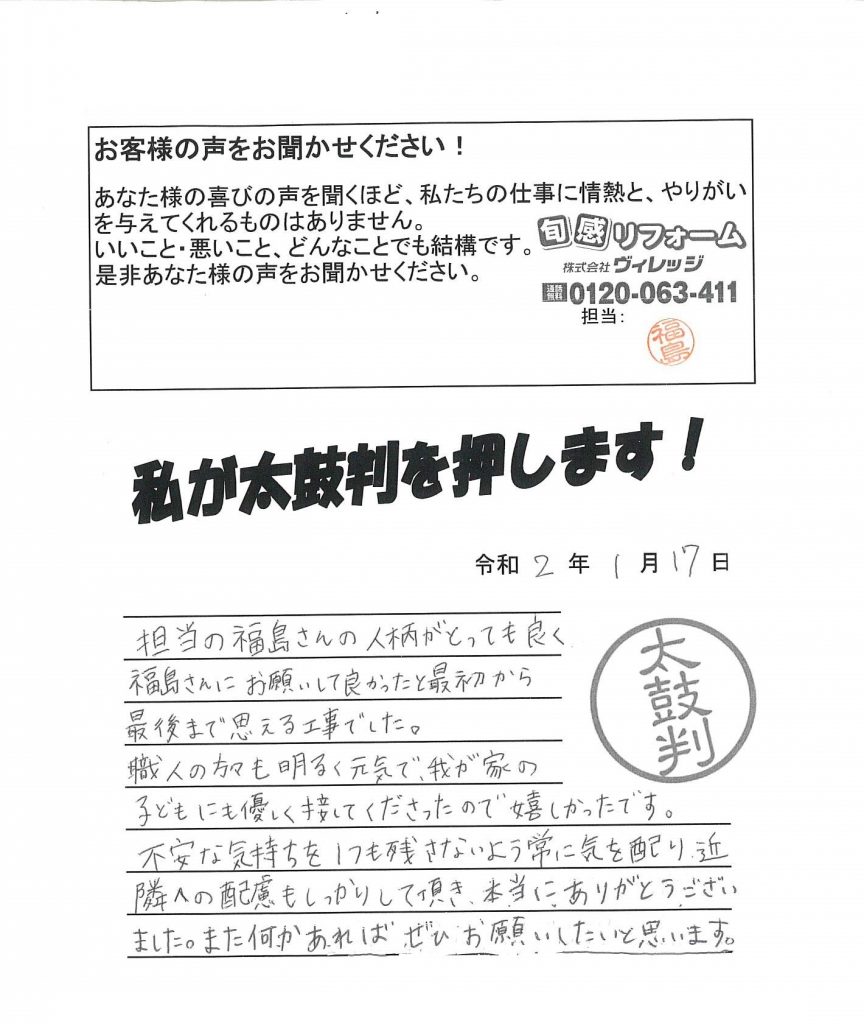 お客様の声をお聞かせください！
あなた様の喜びの声を聞くほど、私たちの仕事に情熱と、やりがい
を与えてくれるものはありません。
いいこと・悪いこと、どんなことでも結構です。
是非あなた様の声をお聞かせください。
旬感リフォーム
株式会社ヴィレッジ
通話無料0120-063-411
担当：
福島
私が太鼓判を押します！
令和2年1月17日
担当の福島さんの人柄がとっても良く
福島さんにお願いして良かったと最初から
最後まで思える工事でした。
職人の方々も明るく元気で、我が家の
子どもにも優しく接してくださったので嬉しかったです。
不安な気持ちを1つも残さないよう常に気を配り、近
隣への配慮もしっかりして頂き、本当にありがとうござい
ました。また何かあればぜひお願いしたいと思います。
太鼓判